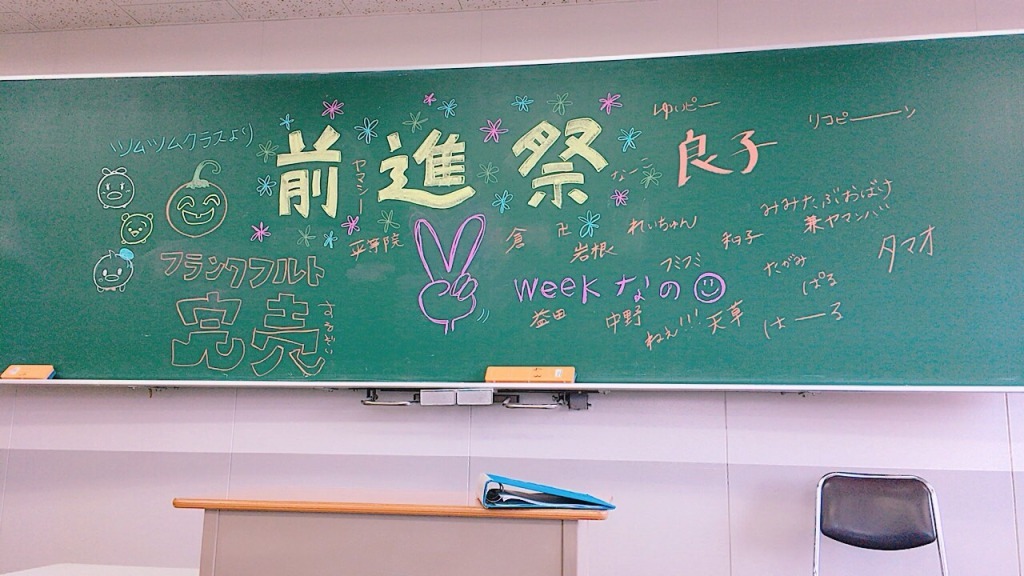 ツムツムクラスより
前進祭
ヤマシー
なーこ
ゆぃピー
良子
リコピーーーン
平等院
倉
卍
岩根
れいちゃん
和子
みみたぶおばけ
兼ヤマンバ
タマオ
フランクフルト
完売
するぞい
weekなの
フミフミ
たがみ
ぱる
益田
中野
ねぇ!!!
天草
はーーる